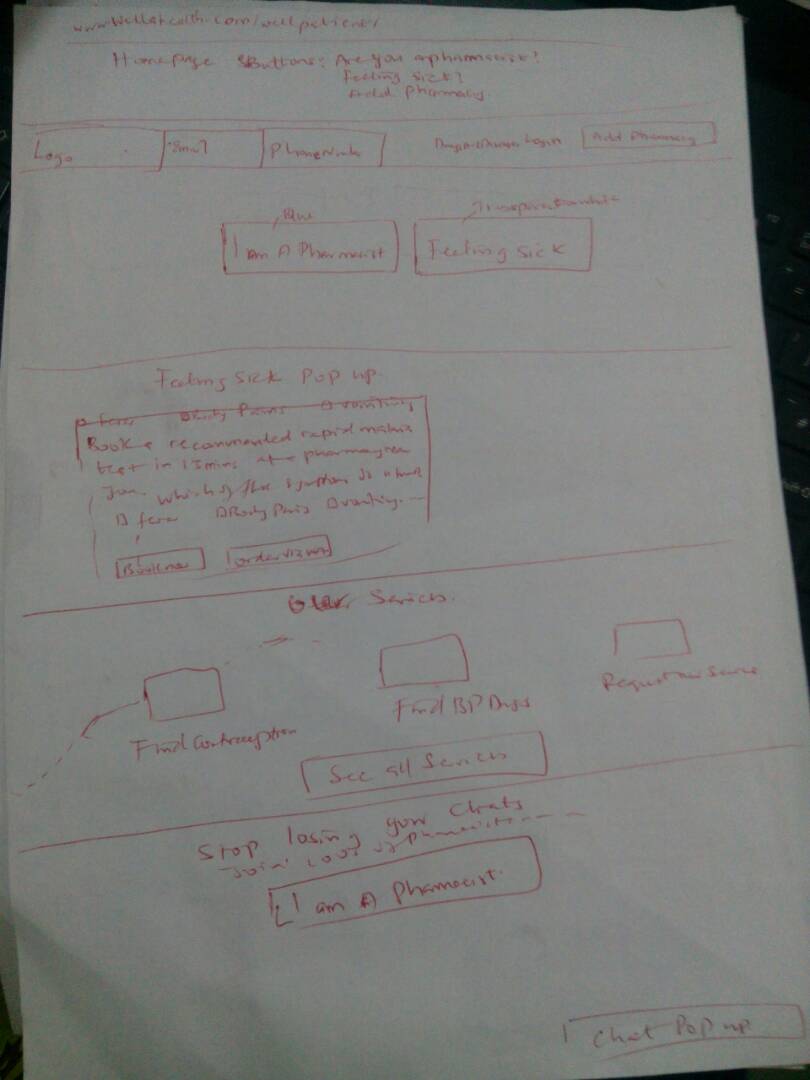 www.WellaHealth.com/wellpatient/
Homepage Buttons: Are you a pharmacist?
Feeling sick?
Add Pharmacy.
Logo
Email
Phone
Login
Add Pharmacy
Blue
Transparent white
I am A Pharmacist
Feeling Sick
Feeling Sick Pop up.
fever Body Pains vomiting
Book a recommended rapid malaria
test in 15 mins at a pharmacy near
you. which of the symptoms do u have
fever Body Pains vomiting.
Book now
order
Our Services.
Find Contraception
Find BP Drugs
Request Services
See all Services
Stop losing your Clients
Join 100s of Pharmacists
I am A Pharmacist.
Chat Pop up